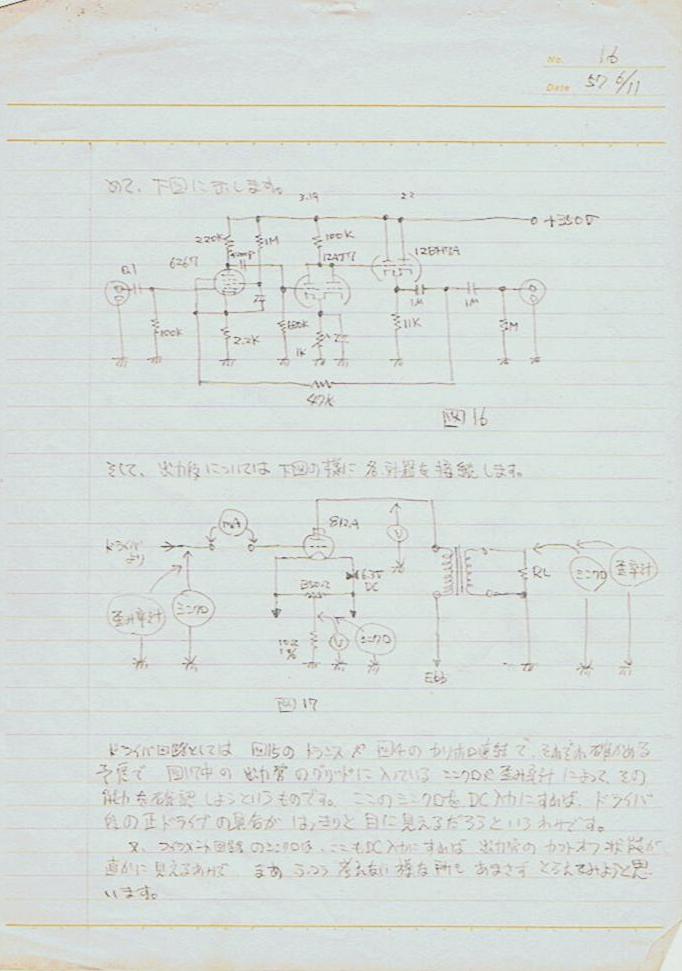 No. 16
Date 57 6/11
めて、下図に示します。
3.19 22
+350V
220K 1M 100K
6267 12AU7 12BH7A
Q1
1M 1M
100K 2.2K 1K 11K 1M
47K
図16
そして、出力段については下図の様に各計器を接続します。
mA 812A V
ドライバより 6.3V DC
歪み率計 シンクロ RL シンクロ 歪率計
10Ω 1% V シンクロ
Ebb
図17
ドライバ回路としては 図15のトランスや図4のカソホロ直結で、それぞれ確かめる
予定で 図17中の出力管のグリッドに入っているシンクロや歪み率計によって、その
能力を確認しようというものです。ここのシンクロを、DC入力にすれば、ドライバ
段の正ドライブの具合が はっきりと目に見えるだろうというわけです。
又、フィラメント回路のシンクロは、ここもDC入力にすれば 出力管のカットオフ状態が
直かに見えるわけで、まあ ふつう 考えない様な所も あまさず とらえてみようと思
います。